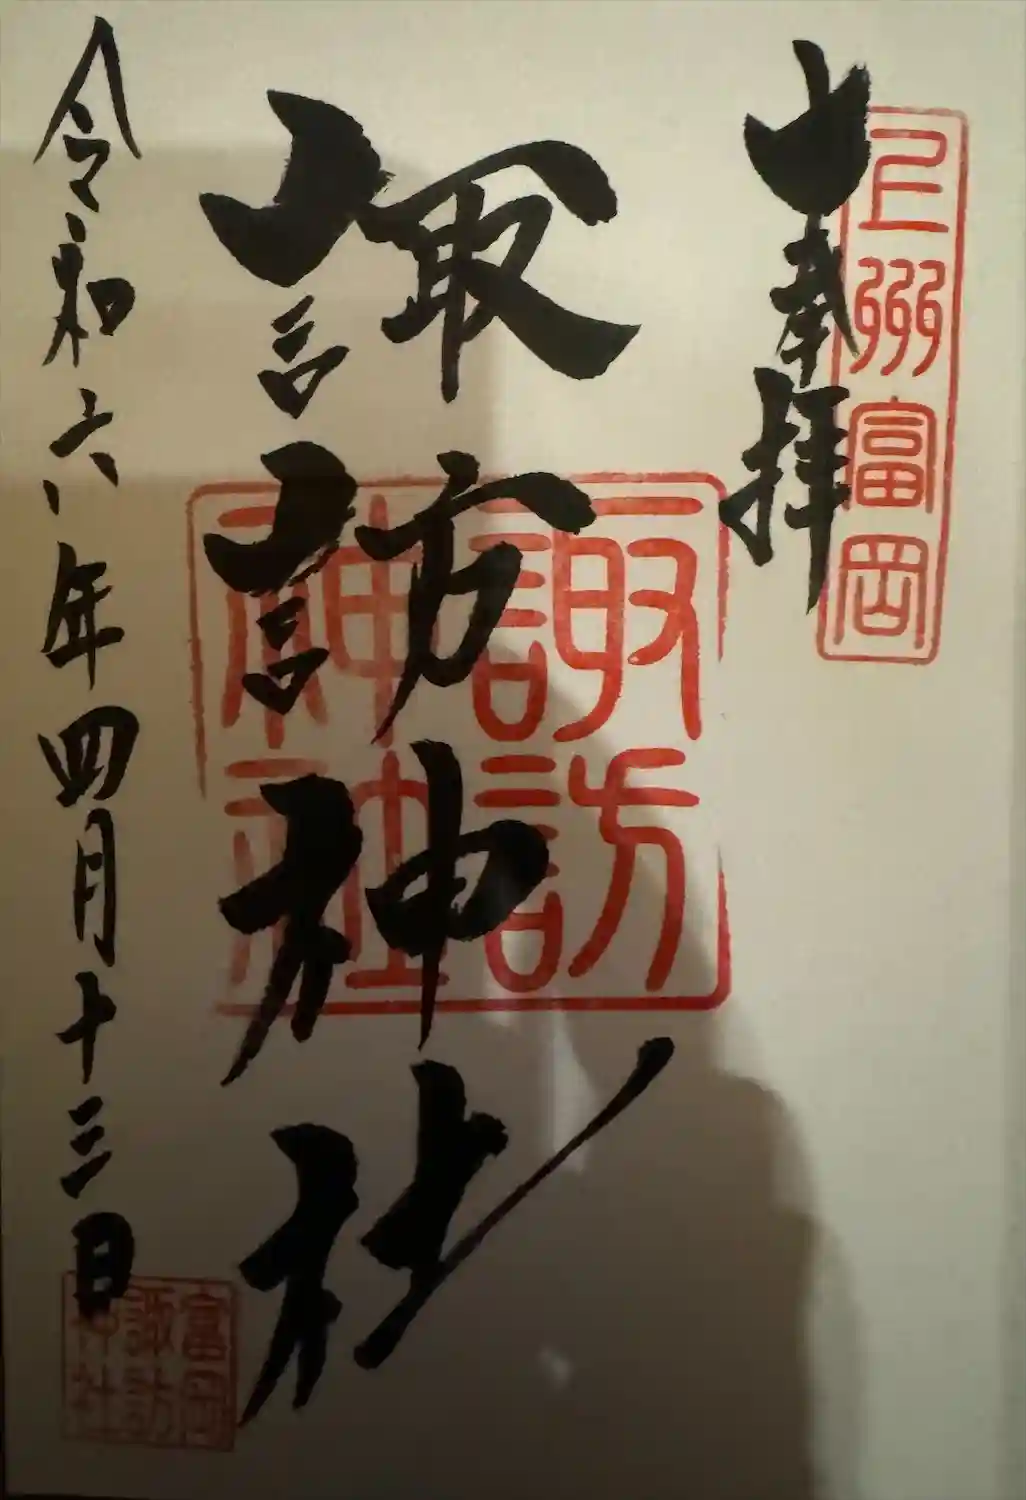 上州富岡
奉拝
諏訪神社
諏訪
神社
令和六年四月十三日
富岡
諏訪
神社